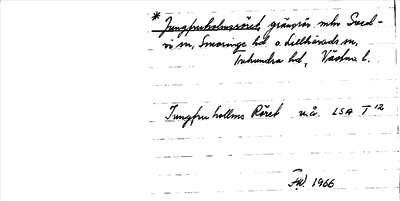 * Jungfruholmsröret, gränsrös mlm Sved-
vi sn, Snevringe hd o. Lillhärads sn,
Tuhundra hd, Västm l.
Jungfru hollms Röret u.å. LSA T 12
1966